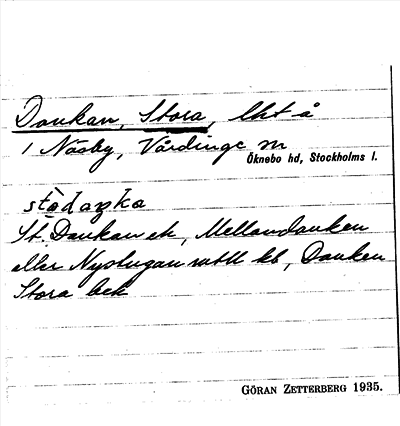 Dankan, Stora, lht å
1 Näsby, Vårdinge sn
Öknebo hd, Stockholms l.
St. Dankan ek, Mellandanken
eller Nystugan kb, Danken
Stora bek
GÖRAN ZETTERBERG 1935.